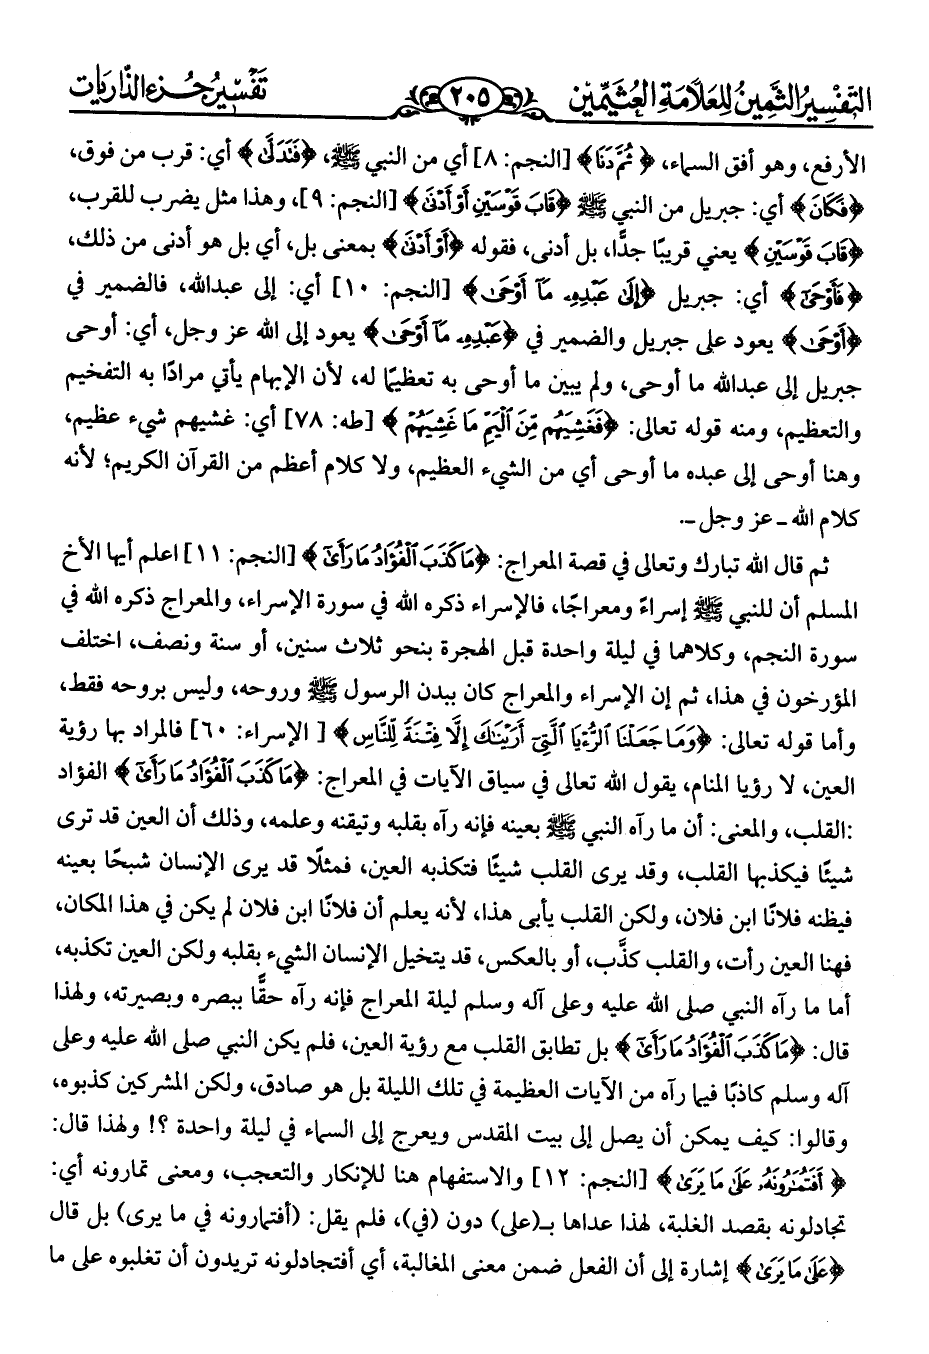 التفسير الثمين للعلامة العثيمين ٢٠٥ تفسير جزء الذاريات
الأرفع، وهو أفق السماء، ﴿ ثُمَّ دَنَا﴾ [النجم: ٨] أي من النبي ﷺ، ﴿فَتَدَلَّىٰ﴾ أي: قرب من فوق،
﴿فَكَانَ﴾ أي: جبريل من النبي ﷺ ﴿قَابَ قَوْسَيْنِ أَوْ أَدْنَىٰ﴾ [النجم: ٩]، وهذا مثل يضرب للقرب،
﴿قَابَ قَوْسَيْنِ﴾ يعني قريبًا جدًّا، بل أدنى، فقوله ﴿أَوْ أَدْنَىٰ﴾ بمعنى بل، أي بل هو أدنى من ذلك،
﴿فَأَوْحَىٰٓ﴾ أي: جبريل ﴿إِلَىٰ عَبْدِهِۦ مَآ أَوْحَىٰ﴾ [النجم: ١٠] أي: إلى عبدالله، فالضمير في
﴿أَوْحَىٰ﴾ يعود على جبريل والضمير في ﴿عَبْدِهِۦ مَآ أَوْحَىٰ﴾ يعود إلى الله عز وجل، أي: أوحى
جبريل إلى عبدالله ما أوحى، ولم يبين ما أوحى به تعظيمًا له، لأن الإبهام يأتي مرادًا به التفخيم
والتعظيم، ومنه قوله تعالى: ﴿فَغَشِيَهُم مِّنَ ٱلْيَمِّ مَا غَشِيَهُمْ ﴾ [طه: ٧٨] أي: غشيهم شيء عظيم،
وهنا أوحى إلى عبده ما أوحى أي من الشيء العظيم، ولا كلام أعظم من القرآن الكريم؛ لأنه
كلام الله ـ عز وجل ـ.
ثم قال الله تبارك وتعالى في قصة المعراج: ﴿مَا كَذَبَ ٱلْفُؤَادُ مَا رَأَىٰٓ ﴾ [النجم: ١١] اعلم أيها الأخ
المسلم أن للنبي ﷺ إسراءً ومعراجًا، فالإسراء ذكره الله في سورة الإسراء، والمعراج ذكره الله في
سورة النجم، وكلاهما في ليلة واحدة قبل الهجرة بنحو ثلاث سنين، أو سنة ونصف، اختلف
المؤرخون في هذا، ثم إن الإسراء والمعراج كان ببدن الرسول ﷺ وروحه، وليس بروحه فقط،
وأما قوله تعالى: ﴿وَمَا جَعَلْنَا ٱلرُّءْيَا ٱلَّتِىٓ أَرَيْنَٰكَ إِلَّا فِتْنَةً لِّلنَّاسِ﴾ [ الإسراء: ٦٠] فالمراد بها رؤية
العين، لا رؤيا المنام، يقول الله تعالى في سياق الآيات في المعراج: ﴿مَا كَذَبَ ٱلْفُؤَادُ مَا رَأَىٰٓ ﴾ الفؤاد
:القلب، والمعنى: أن ما رآه النبي ﷺ بعينه فإنه رآه بقلبه وتيقنه وعلمه، وذلك أن العين قد ترى
شيئًا فيكذبها القلب، وقد يرى القلب شيئًا فتكذبه العين، فمثلًا قد يرى الإنسان شبحًا بعينه
فيظنه فلانًا ابن فلان، ولكن القلب يأبى هذا، لأنه يعلم أن فلانًا ابن فلان لم يكن في هذا المكان،
فهنا العين رأت، والقلب كذَّب، أو بالعكس، قد يتخيل الإنسان الشيء بقلبه ولكن العين تكذبه،
أما ما رآه النبي صلى الله عليه وعلى آله وسلم ليلة المعراج فإنه رآه حقًّا ببصره وبصيرته، ولهذا
قال: ﴿مَا كَذَبَ ٱلْفُؤَادُ مَا رَأَىٰٓ ﴾ بل تطابق القلب مع رؤية العين، فلم يكن النبي صلى الله عليه وعلى
آله وسلم كاذبًا فيما رآه من الآيات العظيمة في تلك الليلة بل هو صادق، ولكن المشركين كذبوه،
وقالوا: كيف يمكن أن يصل إلى بيت المقدس ويعرج إلى السماء في ليلة واحدة ؟! ولهذا قال:
﴿ أَفَتُمَٰرُونَهُۥ عَلَىٰ مَا يَرَىٰ﴾ [النجم: ١٢] والاستفهام هنا للإنكار والتعجب، ومعنى تمارونه أي:
تجادلونه بقصد الغلبة، لهذا عداها بـ(على) دون (في)، فلم يقل: (أفتمارونه في ما يرى) بل قال
﴿عَلَىٰ مَا يَرَىٰ﴾ إشارة إلى أن الفعل ضمن معنى المغالبة، أي أفتجادلونه تريدون أن تغلبوه على ما